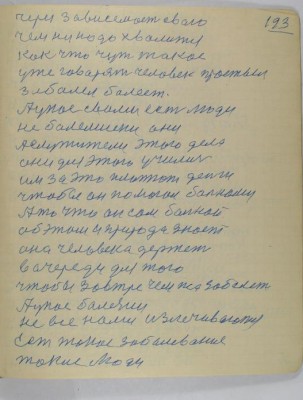 193
через зависемост свого
чем ни подо хвалитя
как что чут такое
уже говарят человек простыл
заболел балеет.
А у нас своми ест люди
не балемшени они
они для этого училис
им за это платят денги
чтобы он помогал балному
А то что он сам балной
об этом и природа знает
она человека держет
в очереди для того
чтобы завтре чем то заболет
А у нас балезни
не все нами излечиваютя
Ест такое заболевание
такие люди